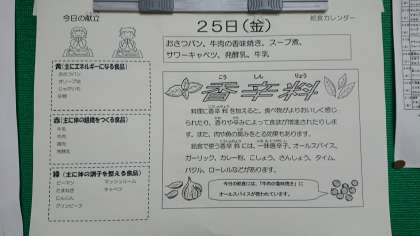 今日の献立
25日(金)
給食カレンダー
おさつパン、牛肉の香味焼き、スープ煮、
サワーキャベツ、発酵乳、牛乳
黄(主にエネルギーになる食品)
おさつパン
オリーブ油
じゃがいも
砂糖
赤(主に体の組織をつくる食品)
牛乳
牛肉
鶏肉
発酵乳
緑(主に体の調子を整える食品)
ピーマン マッシュルーム
たまねぎ キャベツ
にんじん
グリンピース
こう しん りょう
香辛料
料理に香辛料を加えると、食べ物がよりおいしく感じ
られたり、香りや辛みによって食欲が増進されたりしま
す。また、肉や魚の臭みをとる効果もあります。
給食で使う香辛料には、一味唐辛子、オールスパイス、
ガーリック、カレー粉、こしょう、さんしょう、タイム、
バジル、ローレルなどがあります。
今日の給食には、「牛肉の香味焼き」に
オールスパイスが使われています。